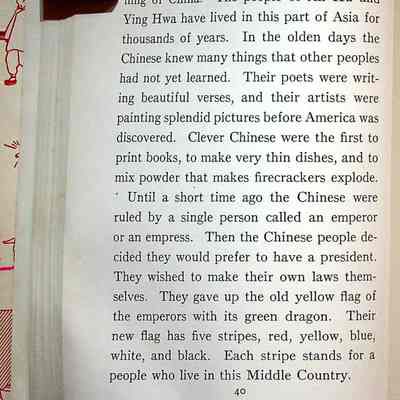 of China. The people of
Ying Hwa have lived in this part of Asia for
thousands of years. In the olden days the
Chinese knew many things that other peoples
had not yet learned. Their poets were writ-
ing beautiful verses, and their artists were
painting splendid pictures before America was
discovered. Clever Chinese were the first to
print books, to make very thin dishes, and to
mix powder that makes firecrackers explode.
Until a short time ago the Chinese were
ruled by a single person called an emperor
or an empress. Then the Chinese people de-
cided they would prefer to have a president.
They wished to make their own laws them-
selves. They gave up the old yellow flag of
the emperors with its green dragon. Their
new flag has five stripes, red, yellow, blue,
white, and black. Each stripe stands for a
people who live in this Middle Country.
40